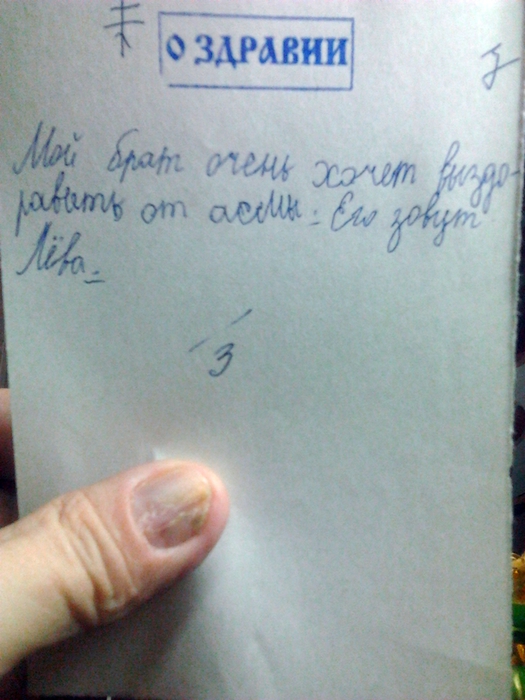 О ЗДРАВИИ
Мой брат очень хочет выздо-
равить от асмы. Его зовут
Лёва.
3